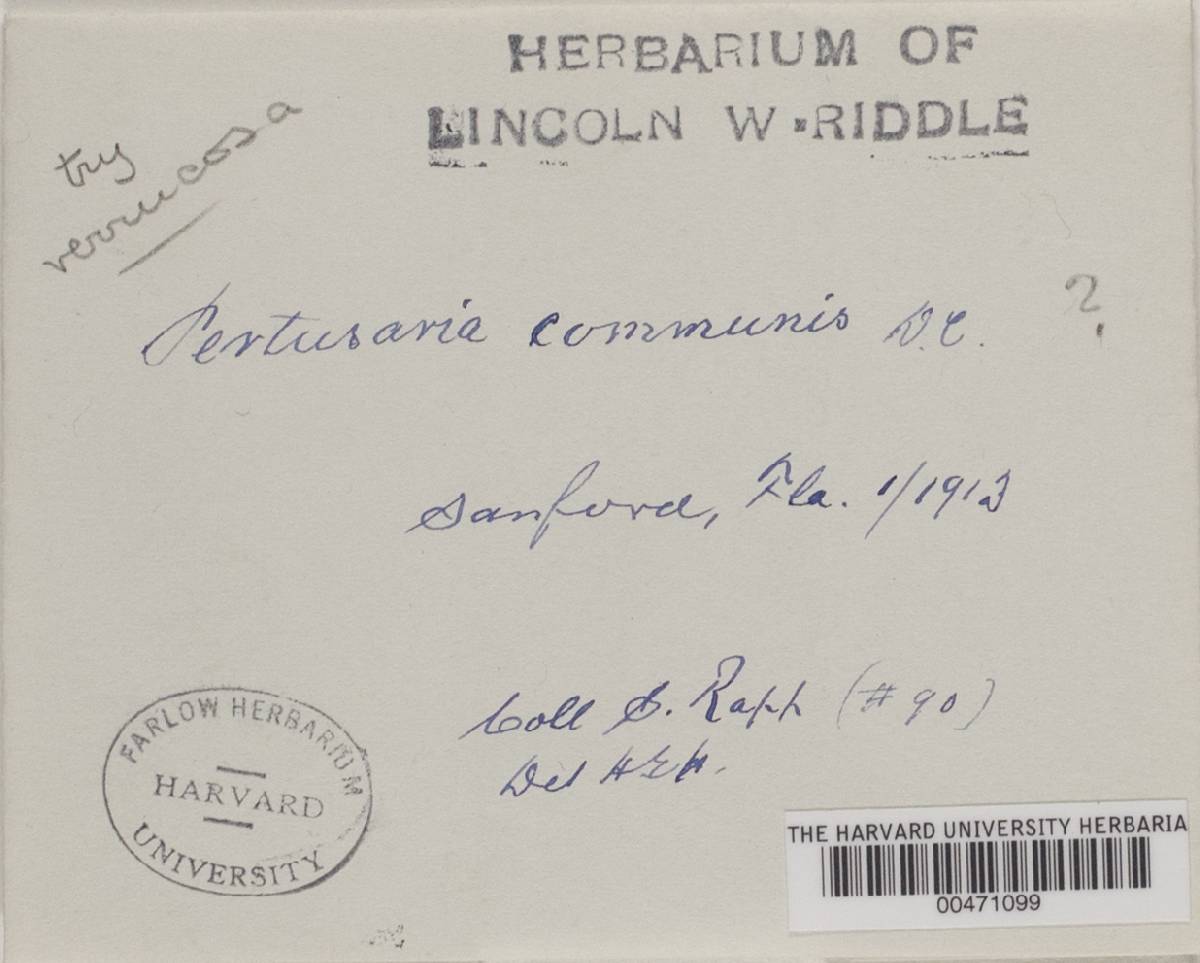 HERBARIUM OF
LINCOLN W. RIDDLE
try
verrucosa
Pertusaria communis D.C. ?
Sanford, Fla. 1/1913
Coll S. Rapp (#90)
Det H.E.H.
FARLOW HERBARIUM
HARVARD
UNIVERSITY
THE HARVARD UNIVERSITY HERBARIA
00471099